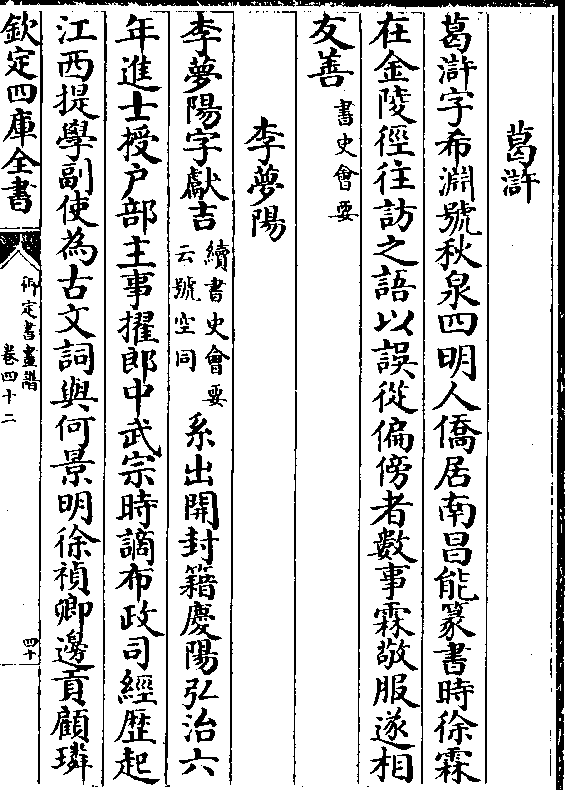 葛滸
葛滸字希淵號秋泉四明人僑居南昌能篆書時徐霖
在金陵徑往訪之語以誤從偏傍者數事霖敬服遂相
友善書史會要
李夢陽
李夢陽字獻吉續書史會要云號空同系出開封籍慶陽弘治六
年進士授户部主事擢郎中武宗時謫布政司經歴起
江西提學副使為古文詞與何景明徐禎卿邊貢顧璘
欽定四庫全書
御定書畫譜
卷四十二
四十